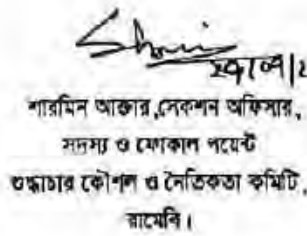 শারমিন আক্তার, সেকশন অফিসার,
সদস্য ও ফোকাল পয়েন্ট
শুদ্ধাচার কৌশল ও নৈতিকতা কমিটি,
রামেবি।